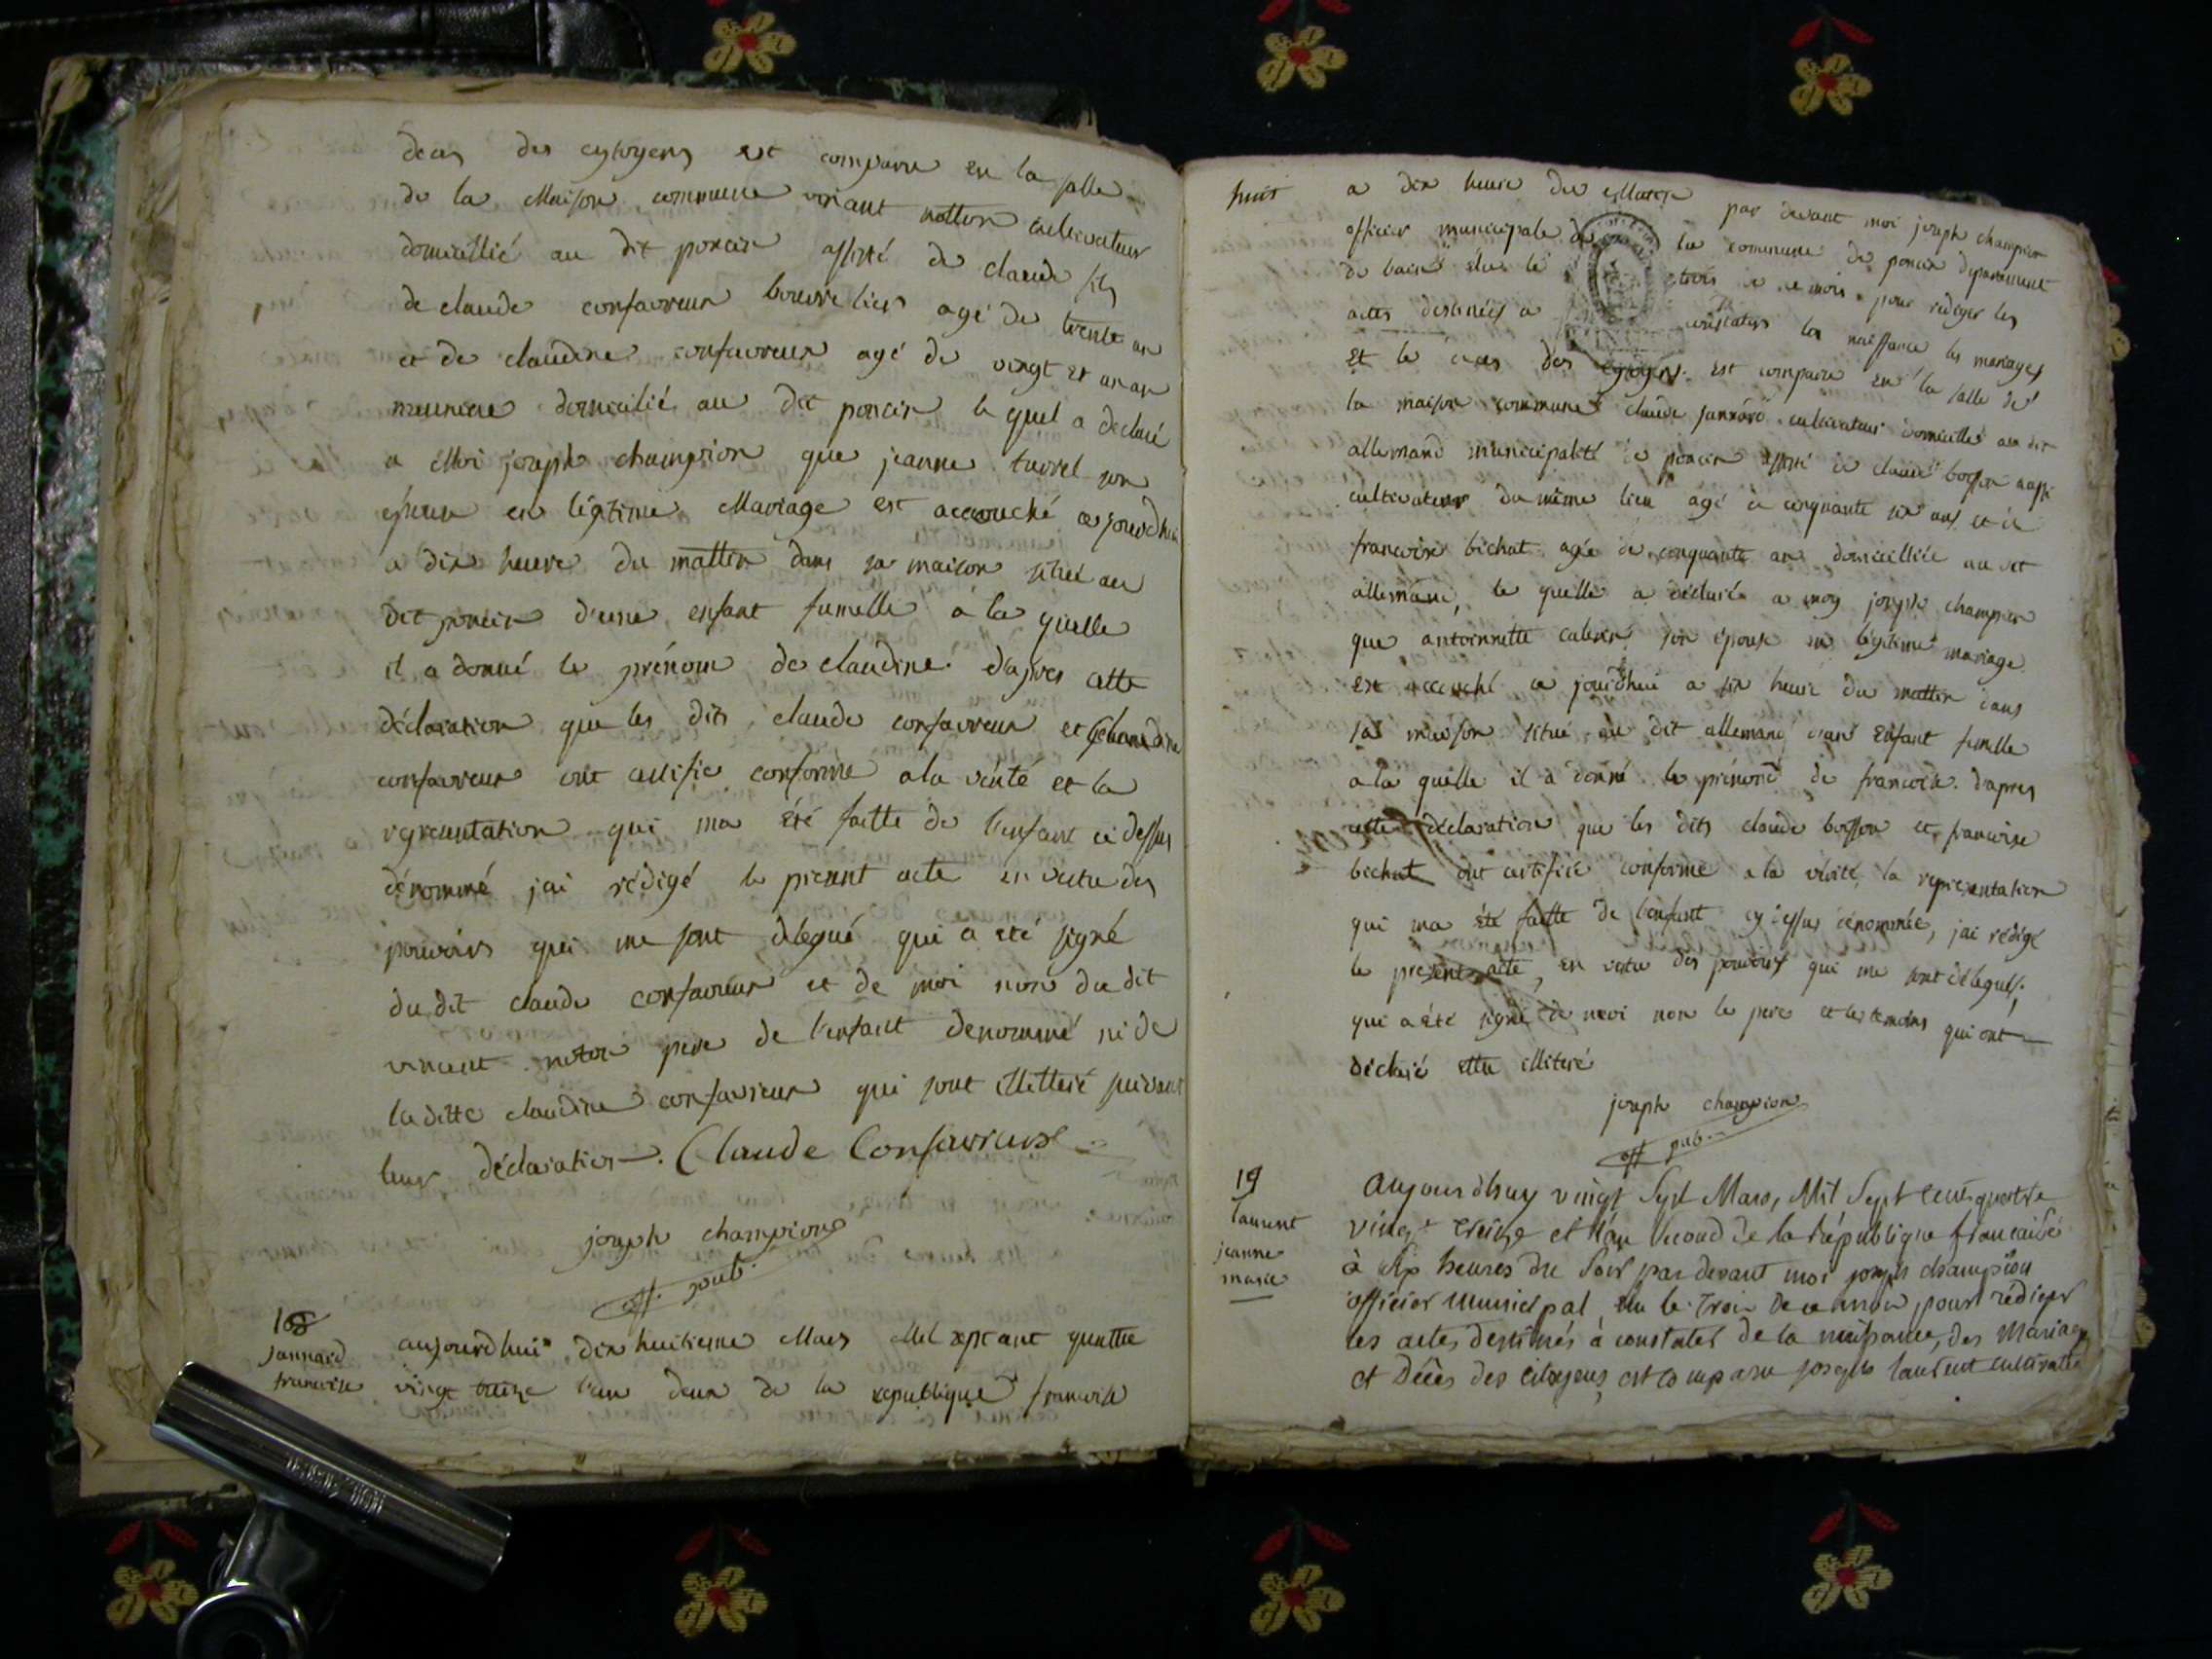 deces des cytoyens est comparu en la salle
de la Maison commune vinant notton cultivateur
domicillié au dit poncin assisté de claude fils
de claude confavreux bourrelier agé de trente an
et de claudine confavreux agé de vingt et un an
meuniere domicilié au dit poncin le quel a déclaré
a Moi joseph champion que jeanne turrel son
épouse en légitime Mariage est accouché ce jourdhui
a dix heure du mattin dans sa maison situé au
dit poncin d'une enfant fumelle a la quelle
il a donné le prénom de claudine. d'apres cette
déclaration que les dits claude confavreux et claudine
confavreux ont certifié conforme a la vérité et la
representation qui ma été faitte de l'enfant ci dessus
dénommé jai rédigé le présent acte en vertu des
pouvoirs qui me sont délegué qui a été signé
du dit claude confavreux et de moi non du dit
vincent notton pere de l'enfant denommé ni de
la ditte claudine confavreux qui sont illetteré suivant
leur déclaration. Claude Confavreux
joseph champion
off. pub.
108
jannard
francoise
aujourdhui dix huitieme Mars Mil sept cent quattre
vingt treize l'an deux de la republique francoise
huit
a dix heure du Mattin par devant moi joseph champion
officier municipale de la commune de poncin departement
de l'ain élue le trois de ce mois pour rédiger les
actes destinées a constater les naissance les mariages
et le deces des cytoyens est comparu en la salle de
la maison commune claude jannard cultivateur domicillié au dit
allemand municipalité de poncin assisté de claude bosson aussi
cultivateur du même lieu agé de cinquante six ans et de
francoise bichat agée de conquante an domicilliée au dit
allemand, le quelle a déclaré a moy joseph champion
que antoinnette son épouse en légitime mariage
est accouché ce jourdhui a six heure du mattin dans
sa maison situé au dit allemand d'une Enfant fumelle
a la quelle il a donné le prénom de francoise. dapres
cette déclaration que les dits claude bosson et francoise
bichat ont certifié conforme a la vérité la representation
qui ma été faitte de l'enfant cy dessus dénommée, jai rédigé
le present acte, en vertu des pouvoirs qui me sont délegués;
qui a été signé de moi non le pere et les temoins qui ont
déclaré ettre illiteré
joseph champion
off pub.
19
laurent
jeanne
marie
Aujourdhuy vingt Sept Mars, Mil Sept cent quattre
vingt treize et l'an Second de la République francaise
à Six heures du Soir par devant moi joseph champion
officier municipal élu le Trois de ce mois pour rédiger
les actes destinés à constater de la naissance, des Mariages
et Décès des citoyens est comparu joseph laurent cultivateur